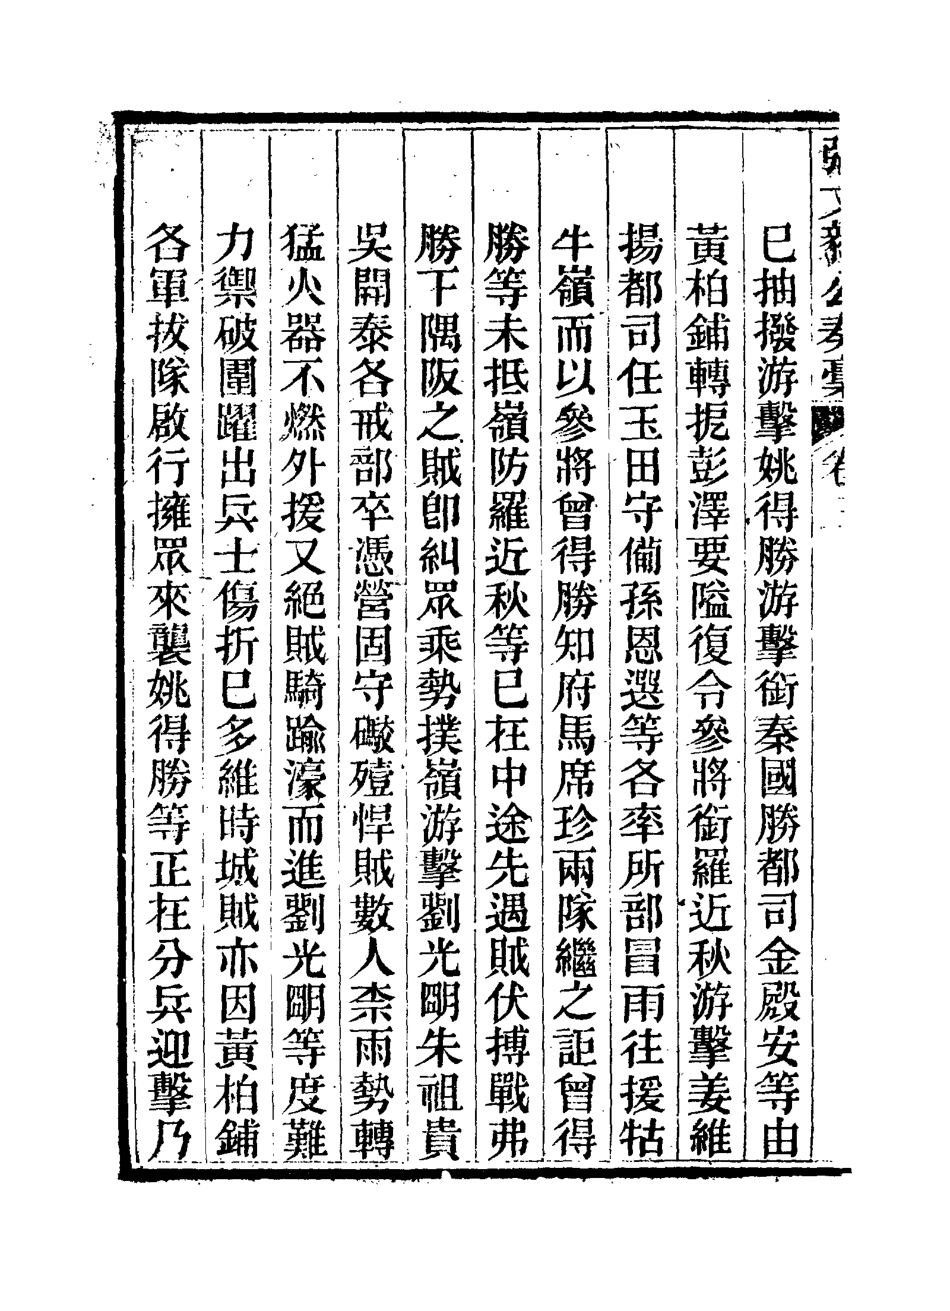 張文毅公奏稾 卷
已抽撥游擊姚得勝游擊銜秦國勝都司金殿安等由
黃柏鋪轉扼彭澤要隘復令參將銜羅近秋游擊姜維
揚都司任玉田守備孫恩選等各率所部冒雨往援牯
牛嶺而以參將曾得勝知府馬席珍兩隊繼之詎曾得
勝等未抵嶺防羅近秋等已在中途先遇賊伏搏戰弗
勝下隅阪之賊卽糾眾乘勢撲嶺游擊劉光明朱祖貴
吳開泰各戒部卒憑營固守礮殪悍賊數人柰雨勢轉
猛火器不燃外援又絕賊騎踰濠而進劉光明等度難
力禦破圍躍出兵士傷折已多維時城賊亦因黃柏鋪
各軍拔隊啟行擁眾來襲姚得勝等正在分兵迎擊乃